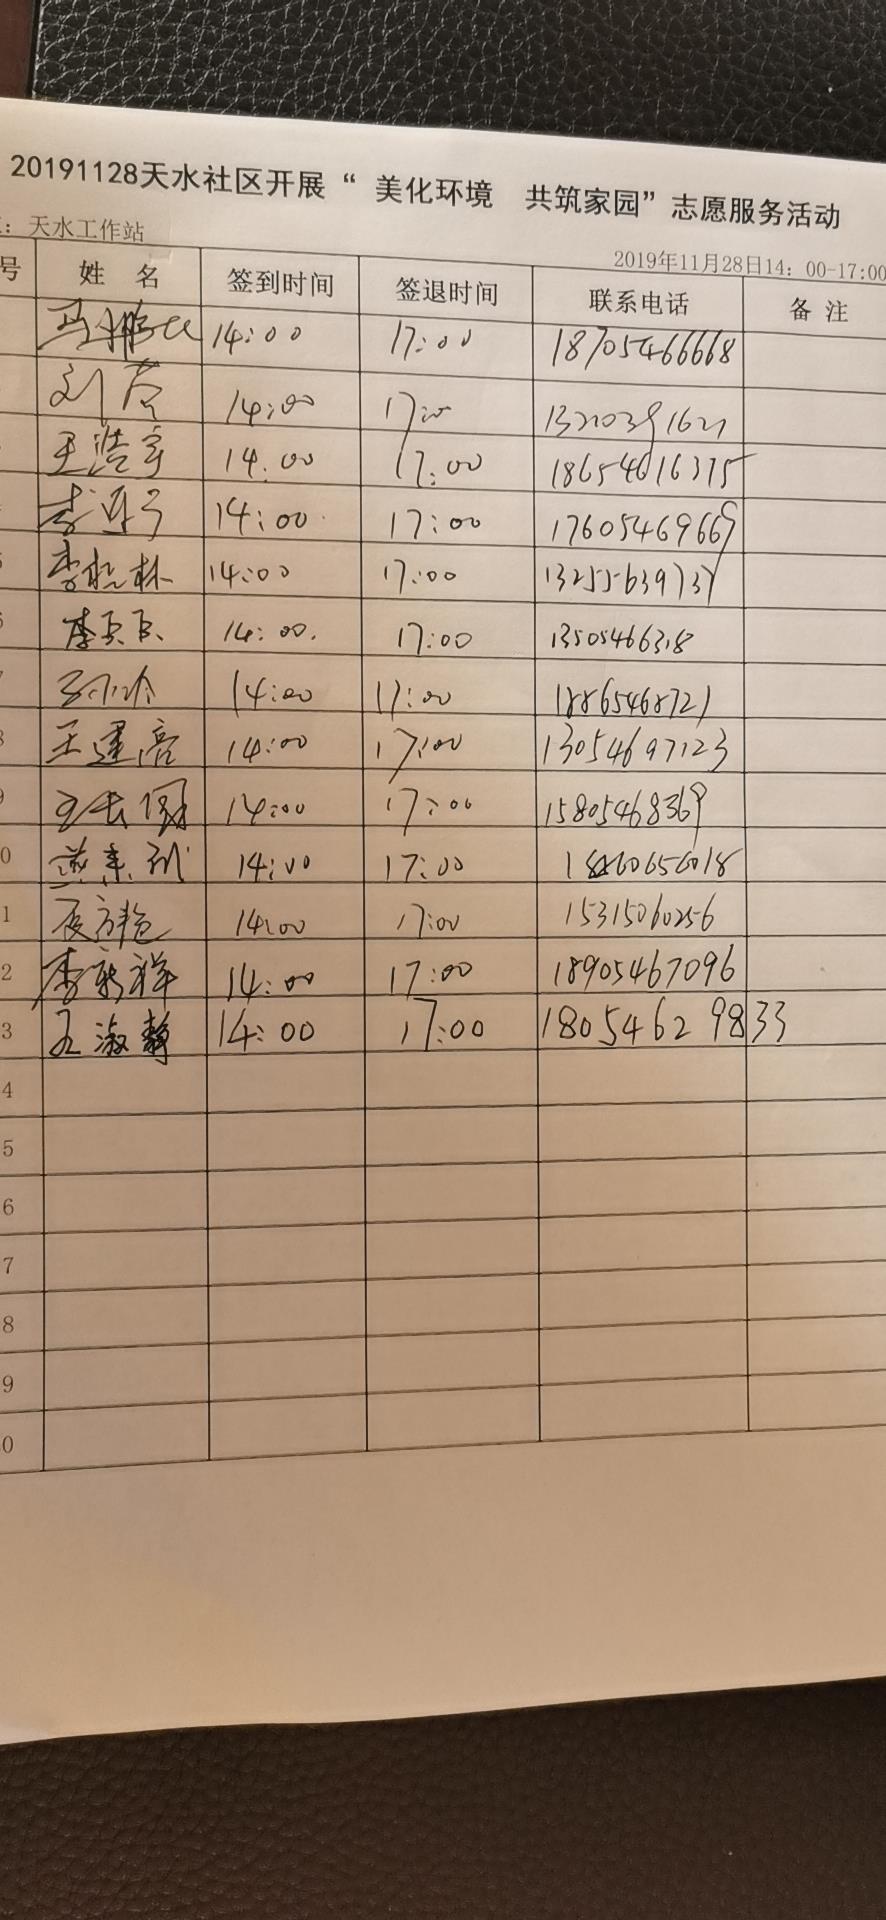 20191128天水社区开展“ 美化环境 共筑家园”志愿服务活动
：天水工作站
2019年11月28日14：00-17:00
号 姓 名 签到时间 签退时间 联系电话 备 注
14:00 17:00 18705466668
刘 14:00 17:00 13210391621
王浩宇 14:00 17:00 18654616375
李 14:00 17:00 17605469669
5 李松林 14:00 17:00 13255639737
6 李 14:00 17:00 13505466318
7 14:00 17:00 18865468721
8 王建亮 14:00 17:00 13054697123
9 王长国 14:00 17:00 15805468369
0 14:00 17:00
1 14:00 17:00 15315060256
2 李新祥 14:00 17:00 18905467096
3 王淑静 14:00 17:00 18054629833
4
5
6
7
8
9
0